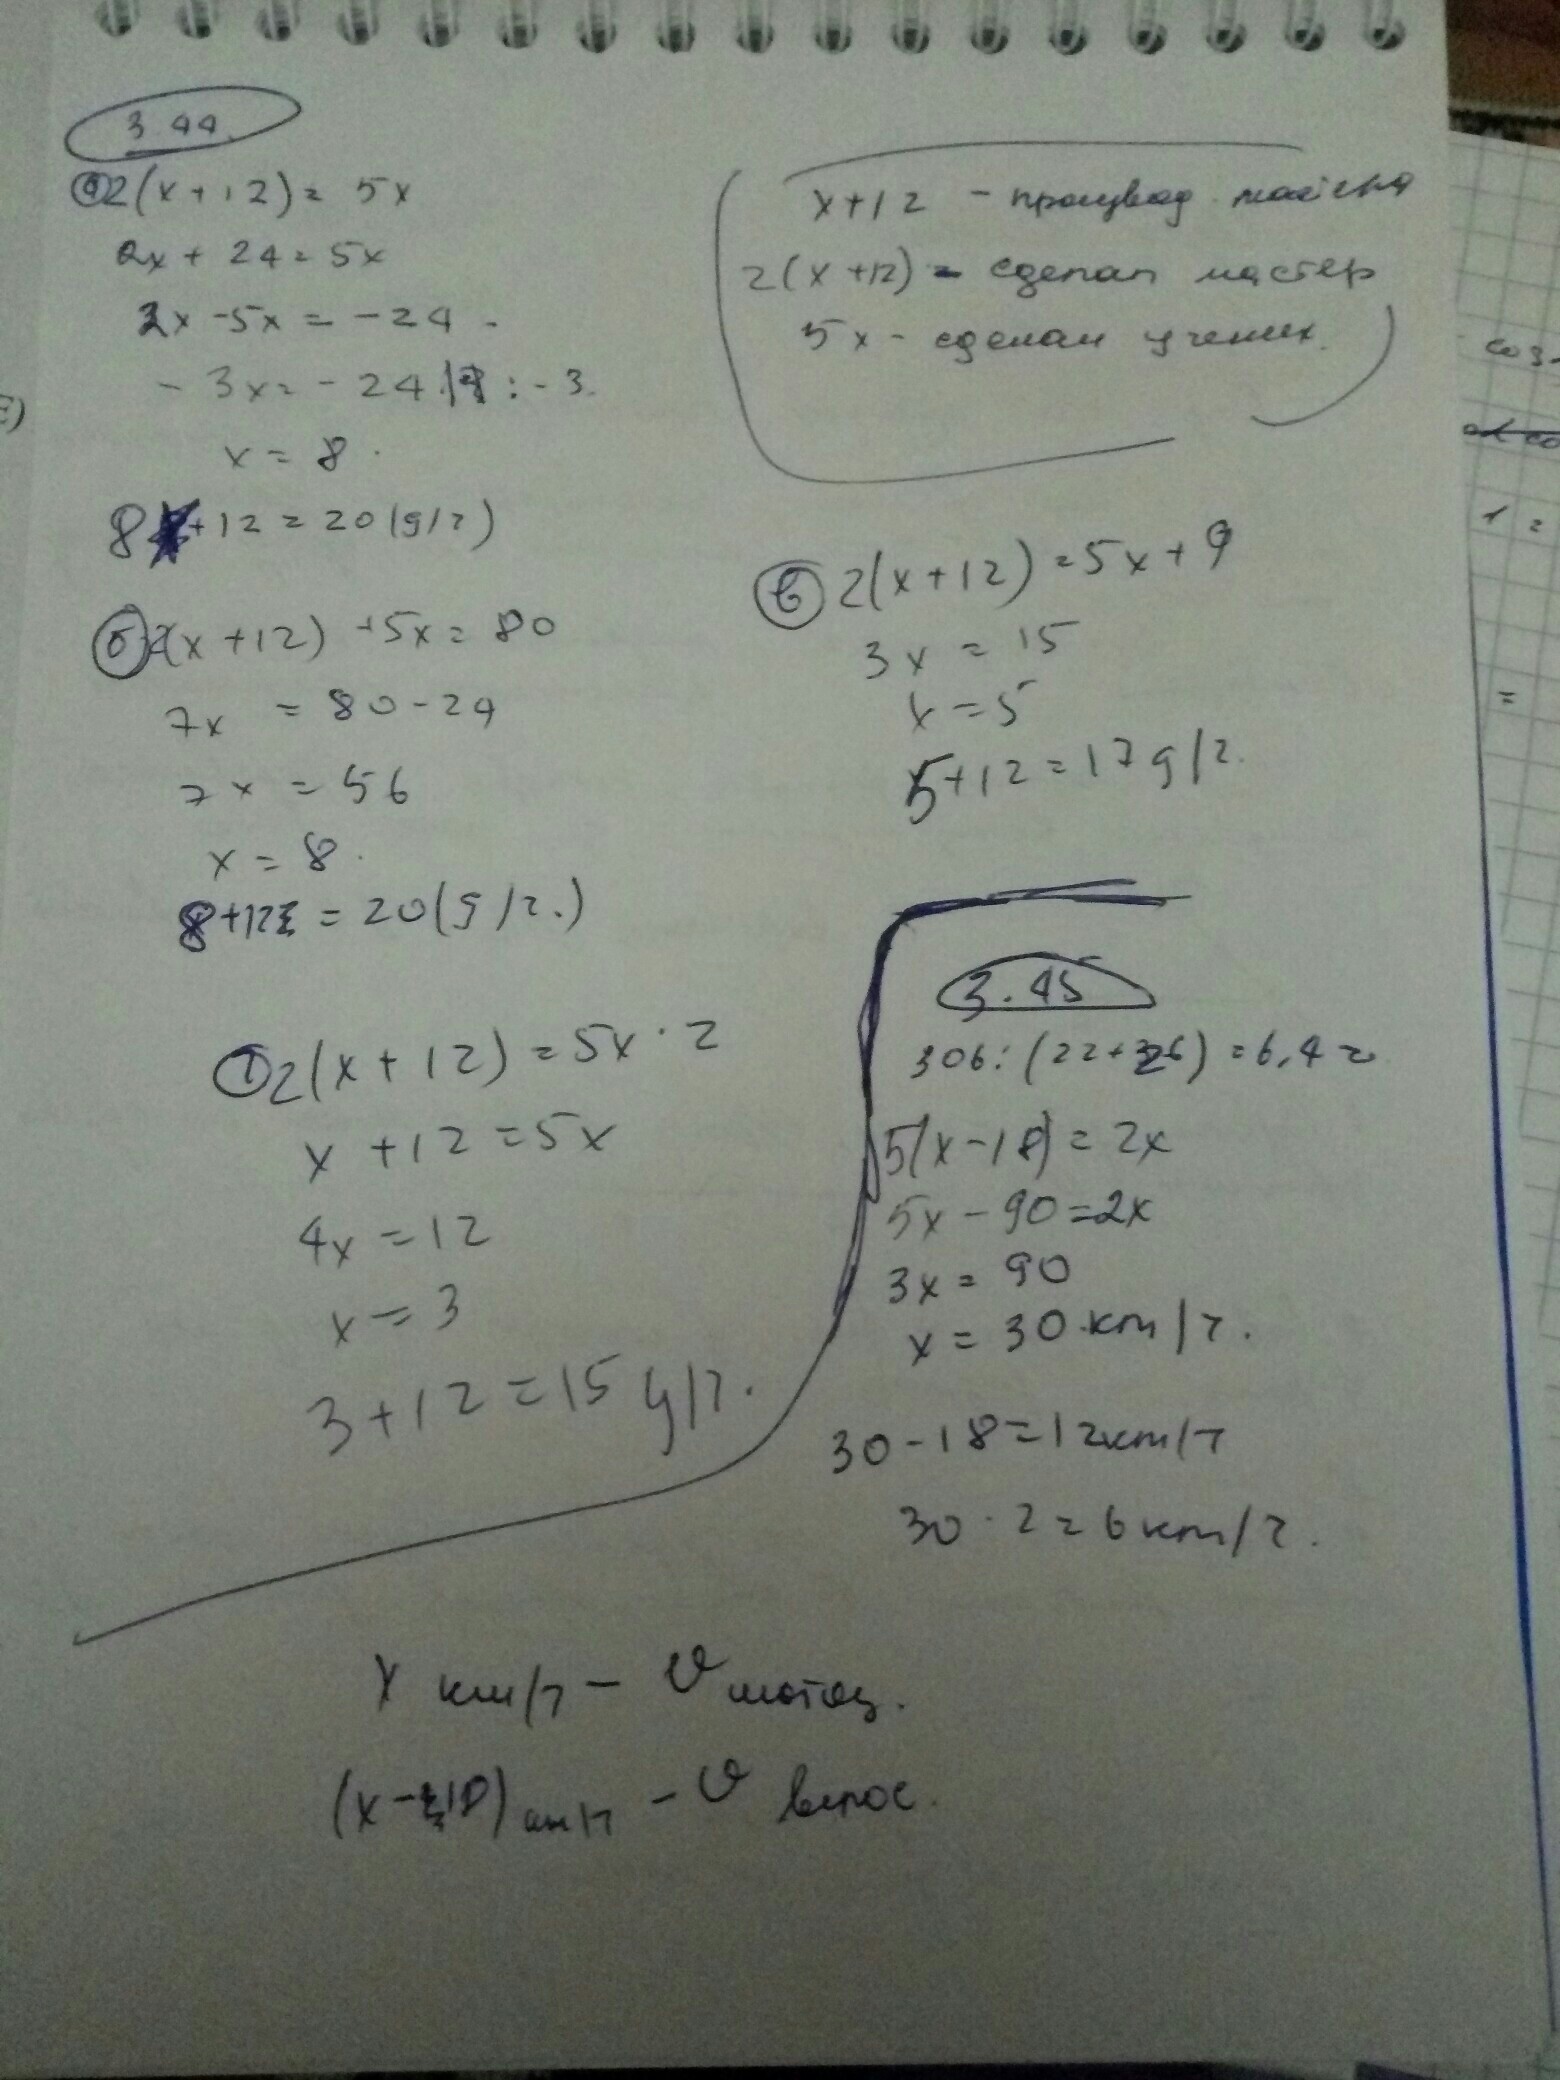 3.44.
а) 2(x+12)=5x
2x+24=5x
2x-5x=-24.
-3x=-24 |:-3.
x=8.
8+12=20(g/г)
x+12 -
2(x+12) - сделал мастер
5x - сделал ученик.
б) 2(x+12)+5x=80
7x = 80-24
7x = 56
x = 8.
8+12 = 20(g/г.)
в) 2(x+12)=5x+9
3x = 15
x=5
5+12=17 g/г.
2(x+12)=5x·2
x+12=5x
4x=12
x=3
3+12=15 g/г.
3.45
306:(22+26)=6,4
5(x-18)=2x
5x-90=2x
3x=90
x=30 км/г.
30-18=12км/г
30·2=6км/г.
x км/г - υ мотоц.
(x-18)км/г - υ велос.
соз-
=